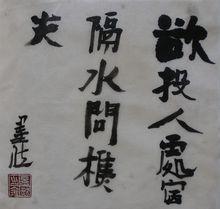 欲投人處宿
隔水問樵
夫